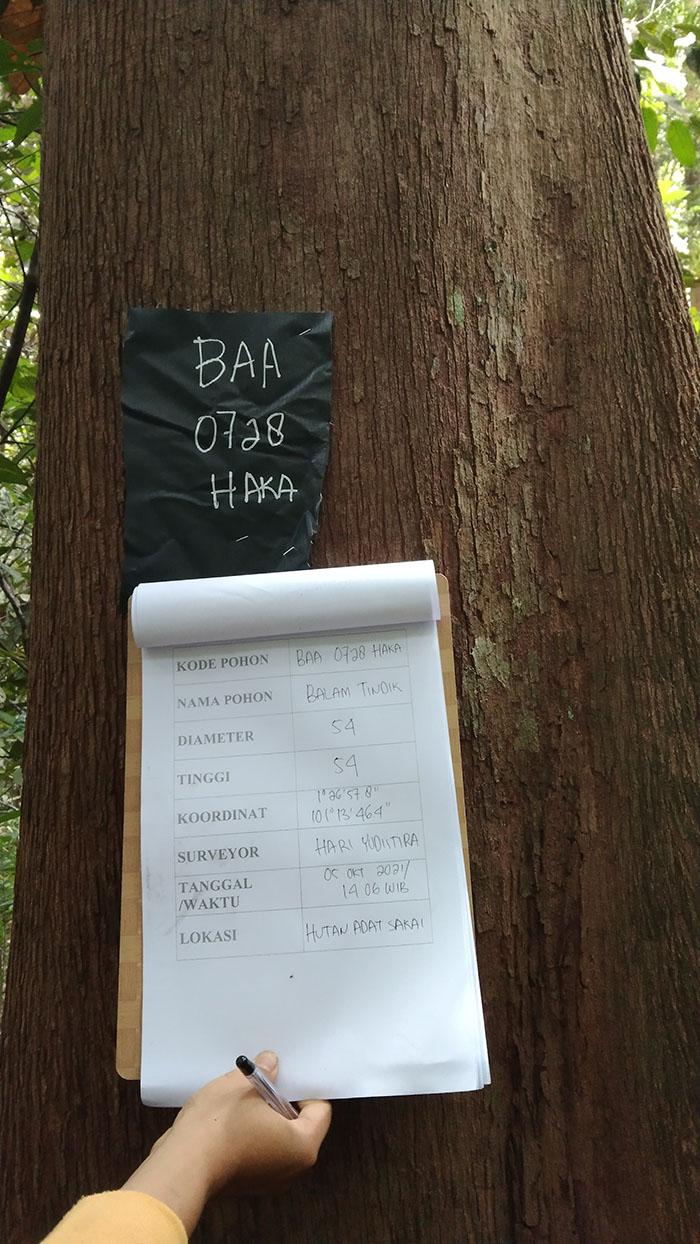 BAA
0728
HAKA
KODE POHON BAA 0728 HAKA
NAMA POHON BALAM TINDIK
DIAMETER 54
TINGGI 54
KOORDINAT 1°26'57 8"
101°13'464"
SURVEYOR HARI YUDITIRA
TANGGAL 05 OKT 2021/
/WAKTU 14 06 WIB
LOKASI HUTAN ADAT SAKAI